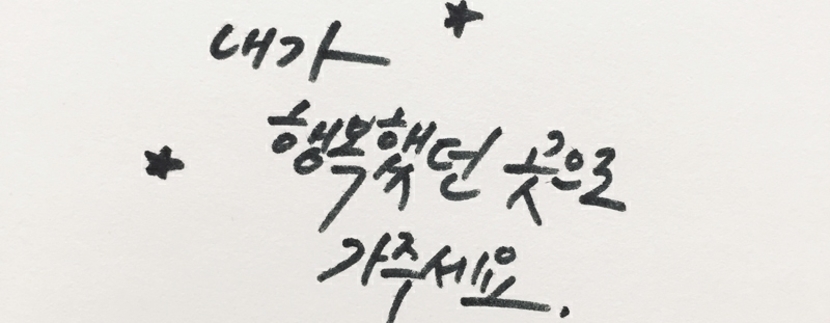 내가
행복했던 곳으로
가주세요.